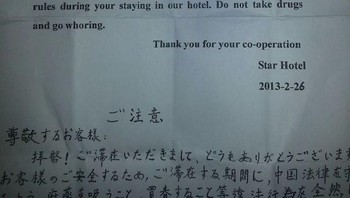 rules during your staying in our hotel. Do not take drugs
and go whoring.
Thank you for your co-operation
Star Hotel
2013-2-26
ご注意
尊敬するお客様:
拝啓!ご滞在いただきまして、どうもありがとうございます
お客様のご安全するため、ご滞在する期間に、中国法律を
麻薬を吸うこと、買春すること等違法行為を全然